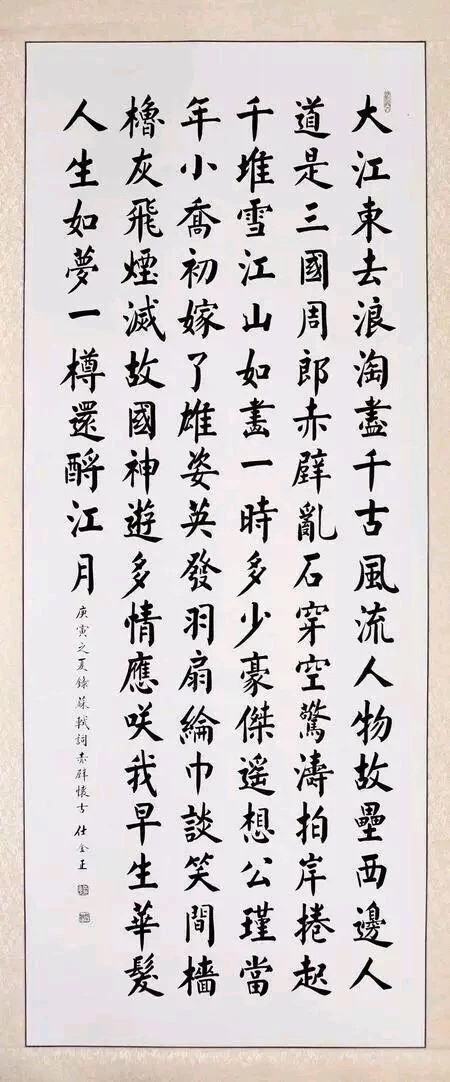 大江東去浪淘盡千古風流人物故壘西邊人
道是三國周郎赤壁亂石穿空驚濤拍岸捲起
千堆雪江山如畫一時多少豪傑遙想公瑾當
年小喬初嫁了雄姿英發羽扇綸巾談笑間檣
櫓灰飛煙滅故國神遊多情應咲我早生華髮
人生如夢一樽還酹江月
庚寅之夏錄蘇軾詞赤壁懷古